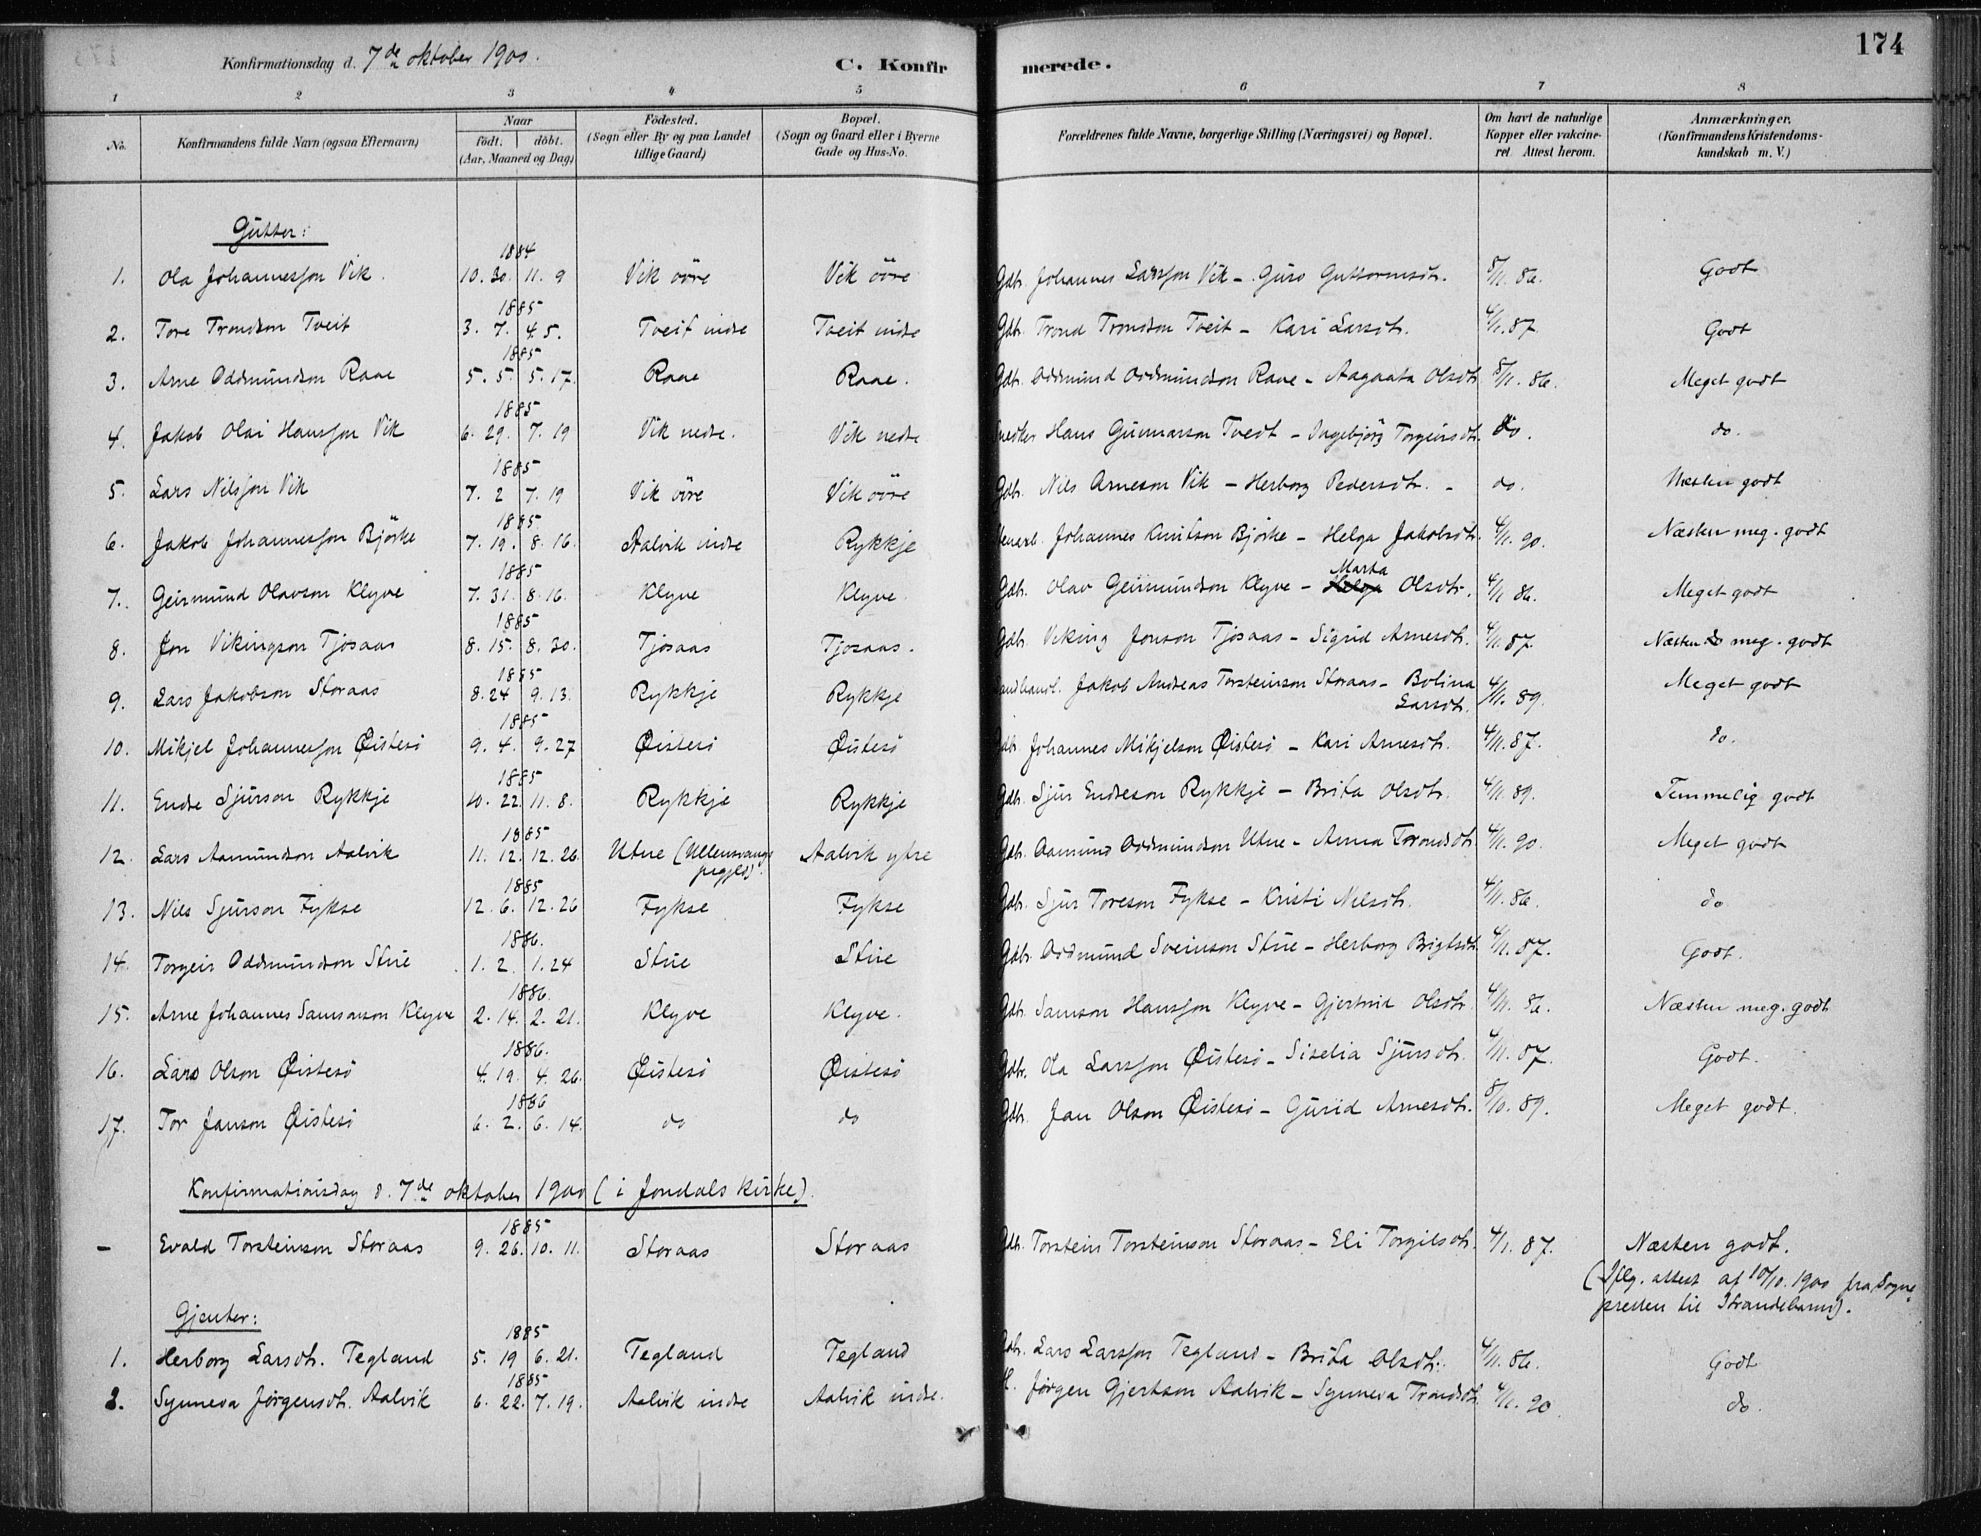 Konfirmationsdag d. 7de oktober 1900. C. Konfirmerede. 174
1 2 3 4 5 6 7 8
No. Konfirmandens fulde Navn (ogsaa Efternavn) Naar födt. döbt. (Aar, Maaned og Dag) Födested. (Sogn eller By og paa Landet tillige Gaard) Bopæl. (Sogn og Gaard eller i Byerne Gade og Hus-No. Forældrenes fulde Navne, borgerlige Stilling (Næringsvei) og Bopæl. Om havt de naturlige Kopper eller vakcineret. Attest herom. Anmærkninger. (Konfirmandens Kristendomskundskab m. V.)
Gutter:
1884
1. Ola Johannesson Vik. 10. 30. 11. 9 Vik övre Vik övre Gdbr. Johannes Larsson Vik - Guro Guttormsdtr. 8/11. 86. Godt
1885
2. Tore Trondson Tveit 3. 7. 4. 5. Tveit indre Tveit indre Gdbr. Trond Trondson Tveit - Kari Larsdtr. 4/11. 87 Godt
1885
3. Arne Oddmundson Raae 5. 5. 5. 17. Raae Raae. Gdbr. Oddmund Oddmundson Raae - Aagaata Olsdtr 8/11. 86. Meget godt
1885
4. Jakob Olai Hansson Vik 6. 29. 7. 19 Vik nedre. Vik nedre Snedker Hans Gunnarson Tvedt - Ingebjörg Torgeirsdtr. do. do.
1885
5. Lars Nilsson Vik 7. 2 7. 19 Vik övre Vik övre Gdbr. Nils Arneson Vik - Herborg Pedersdtr. - do. Næsten godt
1885
6. Jakob Johannesson Björke 7. 19. 8. 16. Aalvik indre Rykkje Johannes Knutson Björke - Helga Jakobsdtr. 4/11. 90. Næsten meg. godt
1885
7. Geirmund Olavson Klyve 7. 31. 8. 16. Klyve Klyve. Gdbr. Olav Geirmundson Klyve - Helga Marta Olsdtr. 4/11 86. Meget godt
1885
8. Jon Vikingson Tjosaas 8. 15. 8. 30. Tjosaas Tjosaas. Gdbr. Viking Jonson Tjosaas - Sigrid Arnesdtr. 4/11. 87. Næsten meg. godt
1885
9. Lars Jakobson Storaas 8. 24 9. 13. Rykkje Rykkje Landhandl. Jakob Andreas Torsteinson Storaas - Bolina Larsdtr. 4/11. 89. Meget godt
1885
10. Mikjel Johannesson Øistesö 9. 4. 9. 27 Øistesö Øistesö Gdb. Johannes Mikjelson Øistesö - Kari Arnesdtr. 4/11. 87. do.
1885
11. Endre Sjurson Rykkje 10. 22. 11. 8. Rykkje Rykkje Gdbr. Sjur Endreson Rykkje - Brita Olsdtr. 4/11. 89. Temmelig godt
1885
12. Lars Aamundson Aalvik 11. 12. 12. 26. Utne (Ullensvangs prgjeld). Aalvik ytre Gdbr. Aamund Oddmundson Utne - Anna Trondsdtr 4/11. 90. Meget godt
1885
13. Nils Sjurson Fykse 12. 6. 12. 26 Fykse Fykse Gdbr. Sjur Toreson Fykse - Kristi Nilsdtr. 4/11. 86. do
1886.
14. Torgeir Oddmundson Stue 1. 2. 1. 24 Stue Stue Gdbr. Oddmund Sveinson Stue - Herborg Brigtsdtr. 4/11. 87. Godt.
1886.
15. Arne Johannes Samsonson Klyve 2. 14. 2. 21. Klyve Klyve. Gdbr. Samson Hansson Klyve - Gjertrud Olsdtr. 4/11. 86. Næsten meg. godt
1886.
16. Lars Olson Øistesö 4. 19. 4. 26. Øistesö Øistesö Gdbr. Ola Larsson Øistesö - Siselia Sjursdtr. 4/11. 87. Godt.
1886
17. Tor Janson Øistesö 6. 2. 6. 14. do do Gdbr. Jan Olson Øistesö - Gurid Arnesdtr. 8/10. 89. Meget godt.
Konfirmationsdag d. 7de oktober 1900 (i Jondals kirke).
1885
- Evald Torsteinson Storaas 9. 26. 10. 11. Storaas Storaas Gdbr. Torstein Torsteinson Storaas - Eli Torgilsdtr. 4/1. 87. Næsten godt.
(Iflg. attest af 10/10. 1900 fra Sogne
presten til Strandebarm).
Gjenter:
1885
1. Herborg Larsdtr. Tegland 5. 19 6. 21. Tegland Tegland Gdbr. Lars Larsson Tegland - Brita Olsdtr. 4/11. 86. Godt
1885
2. Synneva Jørgensdtr. Aalvik 6. 22. 7. 19. Aalvik indre Aalvik indre. Jørgen Gjertson Aalvik - Synneva Trondsdtr. 4/11. 90. do.